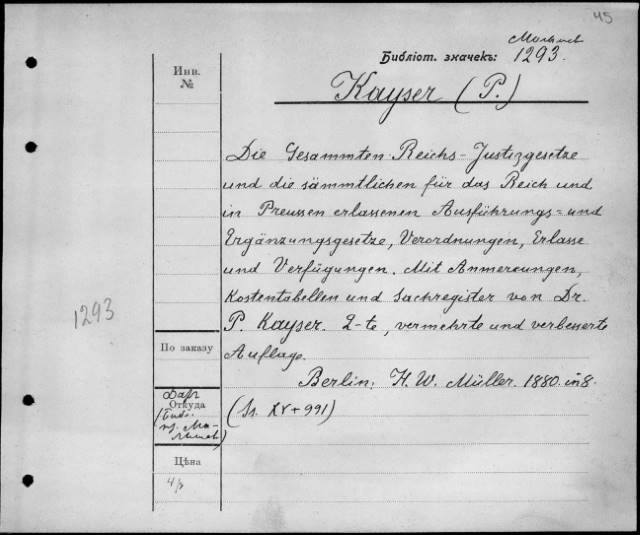 45
Библіот. значекъ: 1293.
Инв.
№
Kayser (P.)
Die Gesammten Reichs-Justizgesetze
und die sämmtlichen für das Reich und
in Preussen erlassenen Ausführungs- und
Ergänzungsgesetze, Verordnungen, Erlasse
und Verfügungen. Mit Anmercungen,
Kostentabellen und Sachregister von Dr.
P. Kayser. 2-te, vermehrte und verbesserte
Auflage.
Berlin: H. W. Müller. 1880. in 8.
(Sr. XV + 991)
1293
По заказу
Даръ
Откуда
Цѣна